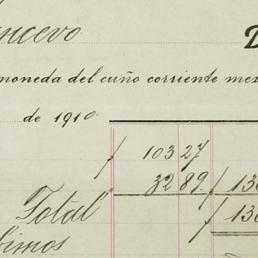 ncevo D
moneda del cuño corriente mex
de 1910.
103 27
32 89 136
Total 136
bimos